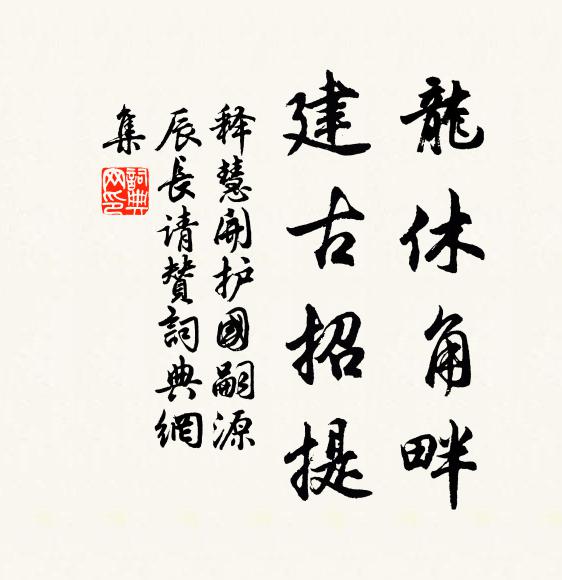 龍休角畔
建古招提
释慧開护國嗣源
辰長请贊詞典網
集
詞典
网印